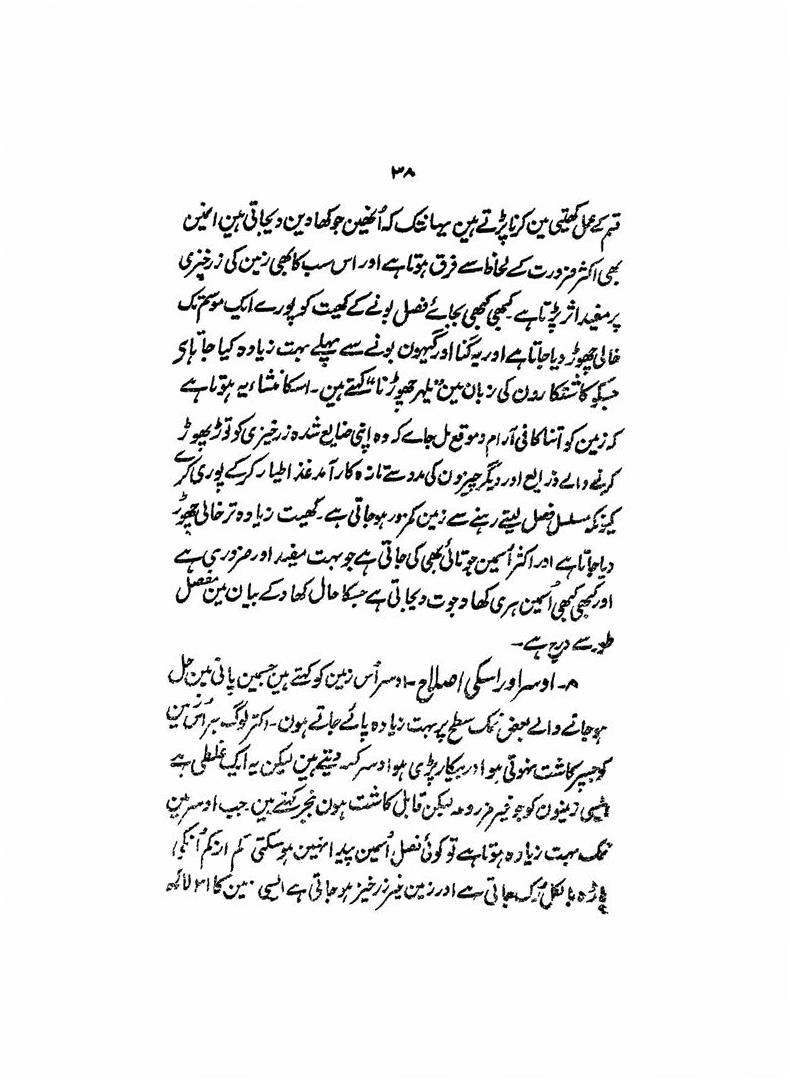 ۳۸
قسم کے عمل کھیتی مین کرنا پڑتے ہین یہانتک کہ اُنھین جو کھادین دیجاتی ہین انمین
بھی اکثر ضرورت کے لحاظ سے فرق ہوتا ہے اور اس سب کا بھی زمین کی زرخیزی
پر مفید اثر پڑتا ہے۔ کبھی کبھی بجائے فصل بونے کے کھیت کو پورے ایک موسم تک
خالی چھوڑ دیا جاتا ہے اور یہ گنا اور گیہون بونے سے پہلے بہت زیادہ کیا جاتا ہی
جسکو کاشتکارون کی زبان مین "پلہر چھوڑنا" کہتے ہین۔ اسکا منشاء یہ ہوتا ہے
کہ زمین کو اتنا کافی آرام و موقع مل جاے کہ وہ اپنی ضایع شدہ زرخیزی کو توڑ پھوڑ
کرنے والے ذرایع اور دیگر چیزون کی مدد سے تازہ کارآمد غذا طیار کرکے پوری کرے
کیونکہ مسلسل فصل لیتے رہنے سے زمین کمزور ہوجاتی ہے۔ کھیت زیادہ تر خالی چھوڑ
دیا جاتا ہے اور اکثر اُسمین جوتائی بھی کی جاتی ہے جو بہت مفید اور ضروری ہے
اور کبھی کبھی اُسمین ہری کھاد جوت دیجاتی ہے جسکا حال کھاد کے بیان مین مفصل
طور سے درج ہے۔
۸۔ اوسر اور اسکی اصلاح۔ اوسر اُس زمین کو کہتے ہین جسمین پانی مین حل
ہوجانے والے بعض نمک سطح پر بہت زیادہ پائے جاتے ہون۔ اکثر لوگ ہر اُس زمین
کو جسپر کاشت نہوتی ہو اور بیکار پڑی ہو اوسر کہہ دیتے ہین لیکن یہ ایک غلطی ہے
ایسی زمینون کو جو غیر مزروعہ لیکن قابل کاشت ہون بنجر کہتے ہین جب اوسر مین
نمک بہت زیادہ ہوتا ہے تو کوئی فصل اُسمین پیدا نہین ہوسکتی کم از کم اُنکی
باڑہ بالکل رُک جاتی ہے اور زمین غیر زرخیز ہوجاتی ہے ایسی زمین کا ۳۱ لاکھ